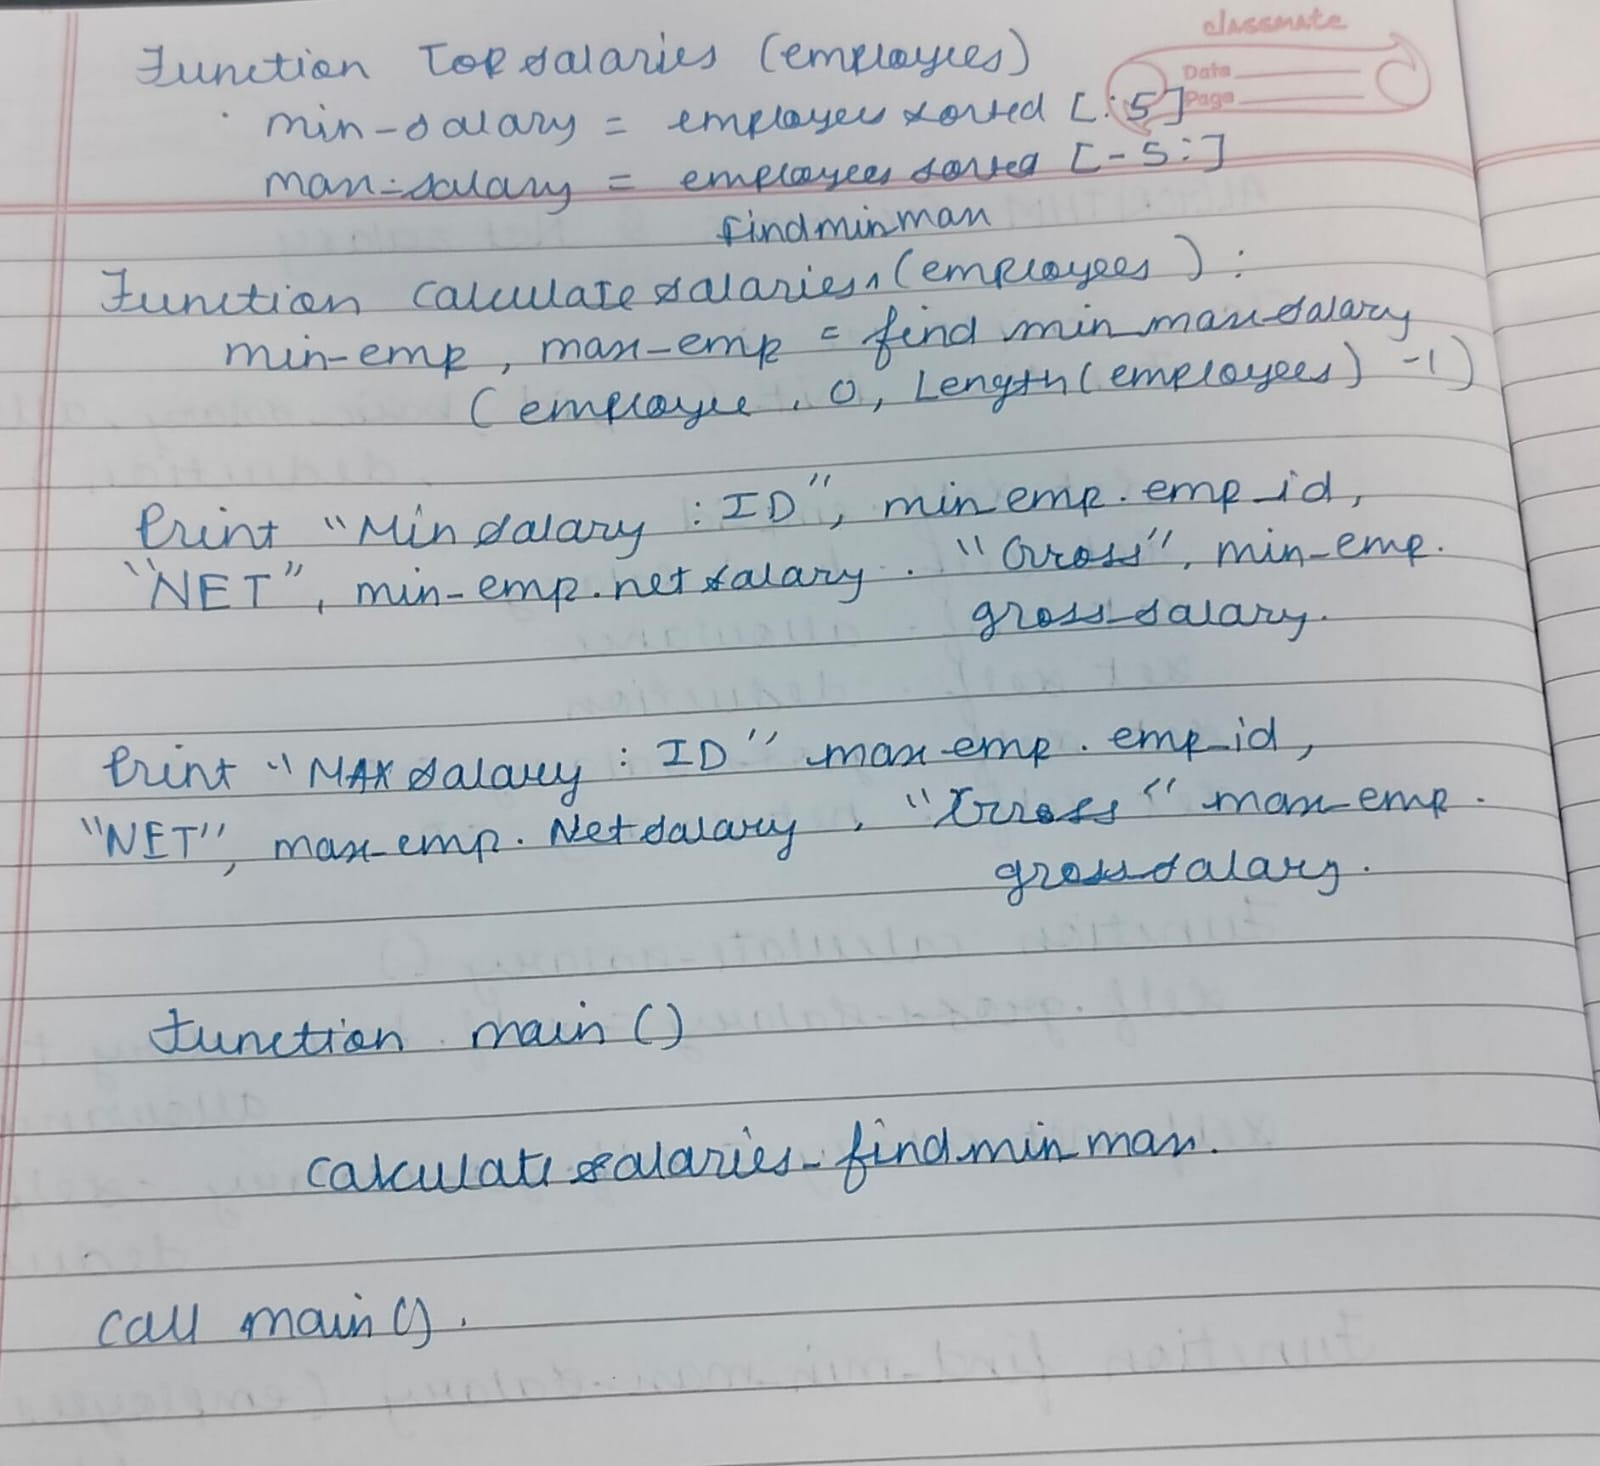 classmate
Date
Page
Function Topsalaries (employees)
min-salary = employees sorted [:5]
max-salary = employees sorted [-5:]
findminmax
Function calculatesalaries^(employees) :
min-emp, max-emp = find min max salary
(employee, 0, Length(employees) -1)
Print "Min salary : ID", min emp. emp_id,
"NET", min-emp. net salary. "Gross", min-emp.
gross-salary.
Print "MAX salary : ID" max-emp. emp-id,
"NET", max-emp. Netsalary, "Gross" max-emp.
grosssalary.
Function main ()
calculate salaries-findminmax.
call main().